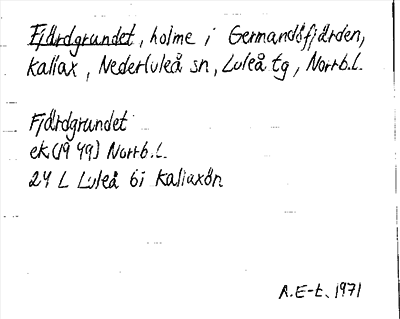 Fjärdgrundet, holme i Germandöfjärden,
Kallax, Nederluleå sn, Luleå tg, Norrb.l.
Fjärdgrundet
ek.(1949) Norrb.l.
24 L Luleå 6i Kallaxön
R.E-t. 1971